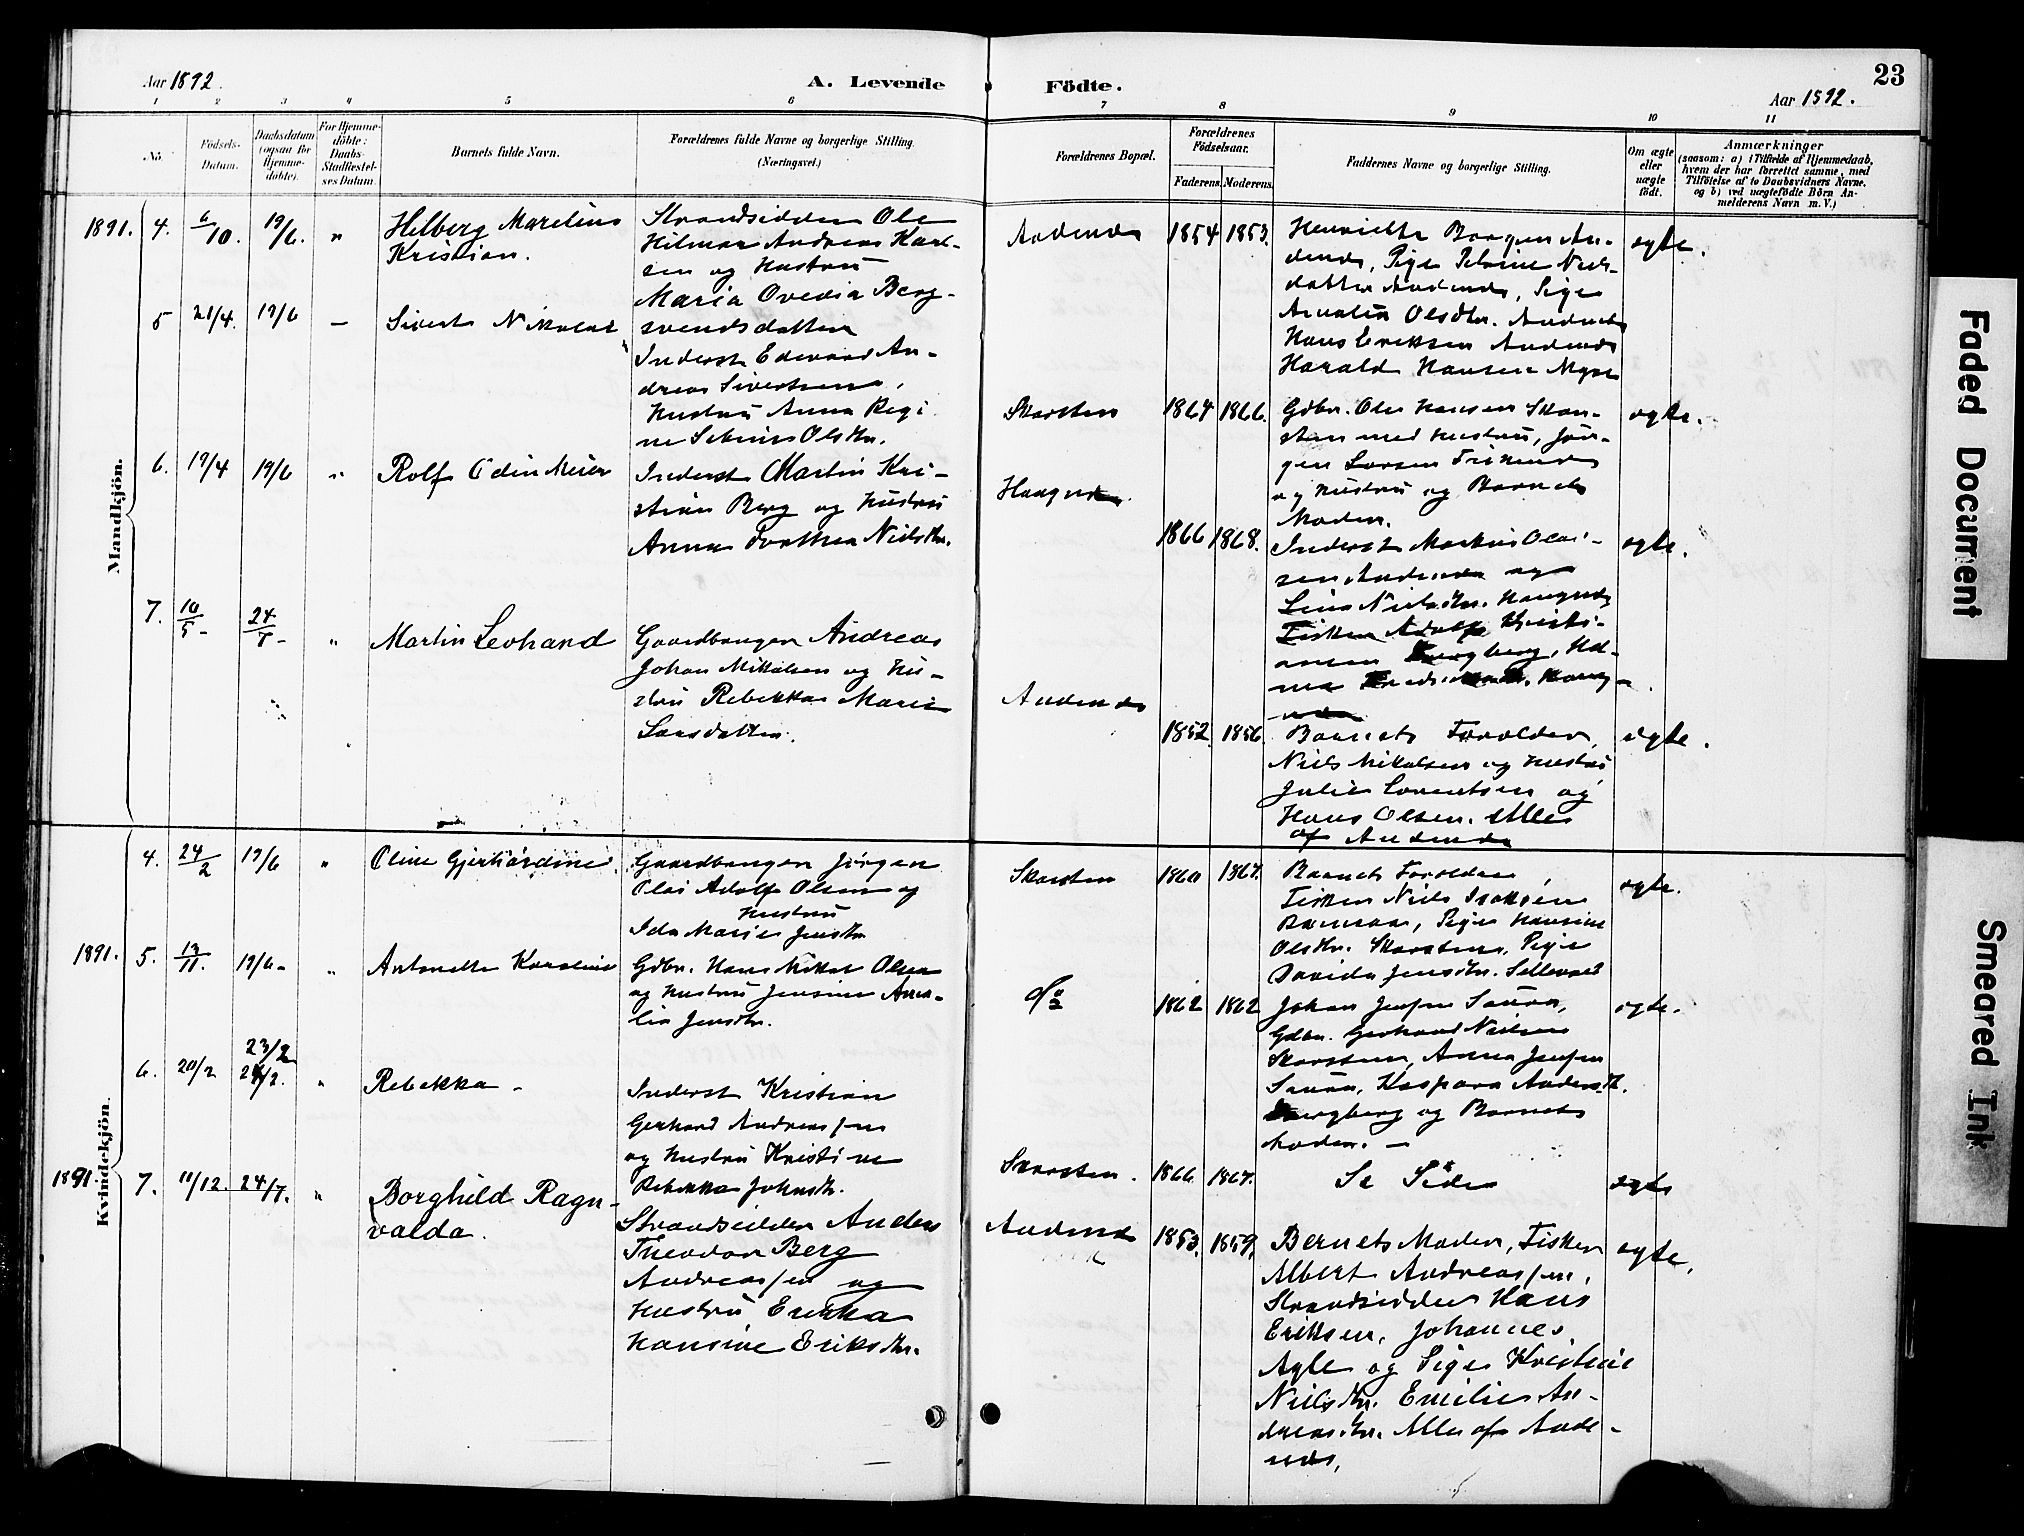 Aar 1892.
A. Levende
Födte.
23
Aar 1892.
1 2 3 4 5 6 7 8 9 10 11
No.
Födsels-
Datum.
Daabsdatum
(ogsaa for
Hjemme-
döbte).
For Hjemme-
döbte:
Daabs-
Stadfæstel-
ses Datum.
Barnets fulde Navn.
Forældrenes fulde Navne og borgerlige Stilling.
(Næringsvei.)
Forældrenes Bopæl.
Forældrenes
Födselsaar.
Faderens.
Moderens.
Faddernes Navne og borgerlige Stilling.
Om ægte
eller
uægte
födt.
Anmærkninger
(saasom: a) i Tilfælde af Hjemmedaab,
hvem der har forrettet samme, med
Tilföielse af to Daabsvidners Navne,
og b) ved uægtefödte Börn An-
melderens Navn m. V.)
Mandkjön.
1891. 4. 6/10. 19/6. "
Hilberg Marelius
Kristian.
Strandsidder Ole
Hilmar Andreas Karl-
sen og Hustru
Maria Ovedia Berg-
svendsdatter
Andenes
1854 1853.
Henriette Borgen An-
denes, Pige Petrine Niels-
datter Andenes, Pige
Amalia Olsdtr. Andenes
Hans Eriksen Andenes
Harald Hansen Myre
ægte.
5 21/4. 19/6 —
Sivert Nikolai
Inderst Edevard An-
dreas Sivertsen,
Hustru Anna Regi
ne Olsdtr.
Skarsten
1864 1866.
Gdbr. Ole Hansen Skar-
sten med Hustru, Jør-
gen Larsen
og Hustru og Barnets
Moder.
ægte.
6. 19/4 19/6 "
Rolf Odin Meier
Inderst Martin Kri-
stian Berg og Hustru
Anna Dorthea Nielsdtr.
Haugnes.
1866 1868.
Inderst Markus Olai-
sen Andenes og
Lina Nielsdtr. Haugnes
Fisker Adolf Kristi-
ansen
ægte.
7. 10/5- 24/7- "
Martin Leohard
Gaardbruger Andreas
Johan Mikalsen og Hu-
stru Rebekka Marie
Larsdatter.
Andenes
1852. 1856.
Barnets Forældre,
Niels Mikalsen og Hustru
Julie Lorentsen og
Hans Olsen. Alle
af Andenes
ægte.
Kvindekjön.
4. 24/2 19/6 "
Oline Gjerhardine
Gaardbruger Jørgen
Olai Adolf Olsen og
Hustru
Ida Marie Jensdtr
Skarsten
1860 1867.
Barnets Forældre,
Fisker Niels Isaksen
Pige Hansine
Olsdtr. Skarsten, Pige
Davida Jensdtr.
ægte.
1891. 5. 13/11. 19/6- "
Antonette Karoline
Gdbr. Hans Mikal Olsen
og Hustru Jensine Ama-
lia Jensdtr.
do
1862 1862
Johan Jensen Saura,
Gdbr. Gerhard Nielsen
Skarsten, Anna Jensen
Saura, Kaspara Andersdt.
og Barnets
Moder. —
ægte.
6. 20/2 23/2
24/2. "
Rebekka -
Inderst Kristian
Gerhard Andreassen
og Hustru Kristine
Rebekka Johnsdtr.
Skarsten.
1866 1867.
Se Side
ægte
1891. 7. 11/12. 24/7. "
Borghild Ragn-
valda.
Strandsidder Anders
Theodor Berg
Andreassen og
Hustru Erikka
Hansine Eriksdtr.
Andenes
1853. 1859.
Bernets Moder, Fisker
Albert Andreassen,
Strandsidder Hans
Eriksen, Johannes
Agle og Pige Kristine
Nielsdtr. Emilie An-
dreasdtr. Alle af Ande-
nes,
ægte,
Faded Document
Smeared Ink